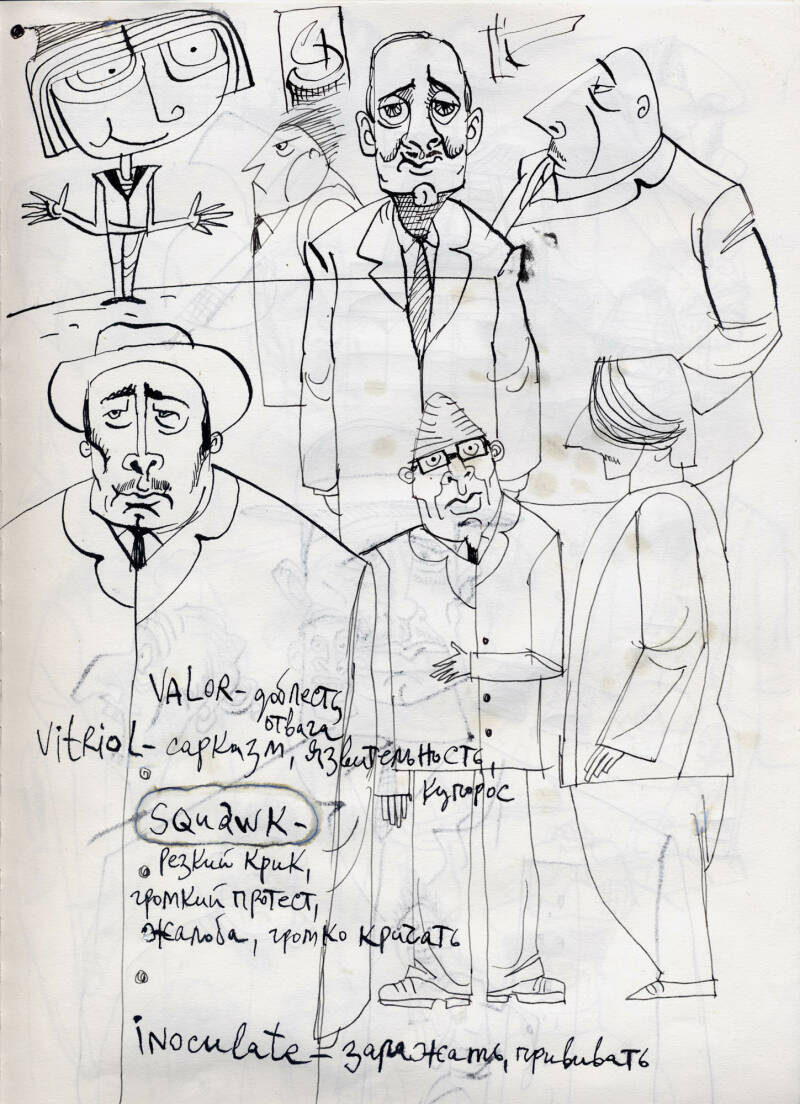 VALOR - доблесть
отвага
VitrioL - сарказм, язвительность,
купорос
SQUAWK -
резкий крик,
громкий протест,
жалоба, громко кричать
inoculate - заражать, прививать